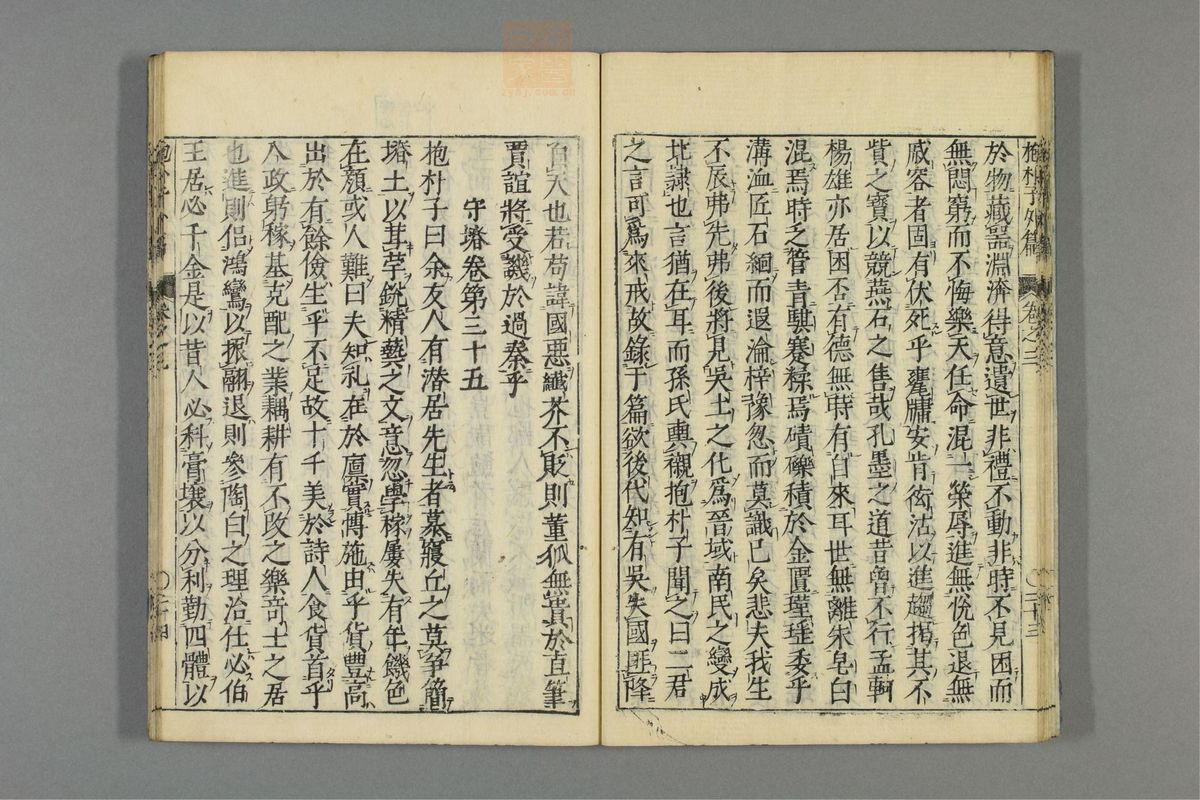 抱朴子外篇 卷之三 〇二十三
於物藏器淵洿得意遺世非禮不動非時不見困而
無悶窮而不悔樂天任命混一榮辱進無悅色退無
戚容者固有伏死乎甕牖安肯衒沽以進趨揭其不
貲之寶以競燕石之售哉孔墨之道昔曾不行孟軻
楊雄亦居困否有德無時有自來耳世無離朱皂白
混焉時乏管青騏蹇糅焉磧礫積於金匱瑾瑤委乎
溝洫匠石緬而遐淪梓豫忽而莫識已矣悲夫我生
不辰弗先弗後將見吳土之化爲晉域南民之變成
北隸也言猶在耳而孫氏輿櫬抱朴子聞之曰二君
之言可爲來戒故錄于篇欲後代知有吳失國匪降
自天也若苟諱國惡纖芥不貶則董狐無貴於直筆
賈誼將受譏於過秦乎
守塉卷第三十五
抱朴子曰余友人有潛居先生者慕寢丘之莫爭簡
塉土以葺茡銳精藝文意忽學稼屢失有年饑色
在顏或人難曰夫知礼在於廩實博施由乎貨豐高
出於有餘儉生乎不足故十千美於詩人食貨首乎
八政躬稼基克配之業耦耕有不改之樂奇士之居
也進則侶鴻鸞以振翮退則參陶白之理治仕必伯
王居必千金是以昔人必科膏壤以分利勤四體以
zysj.com.cn